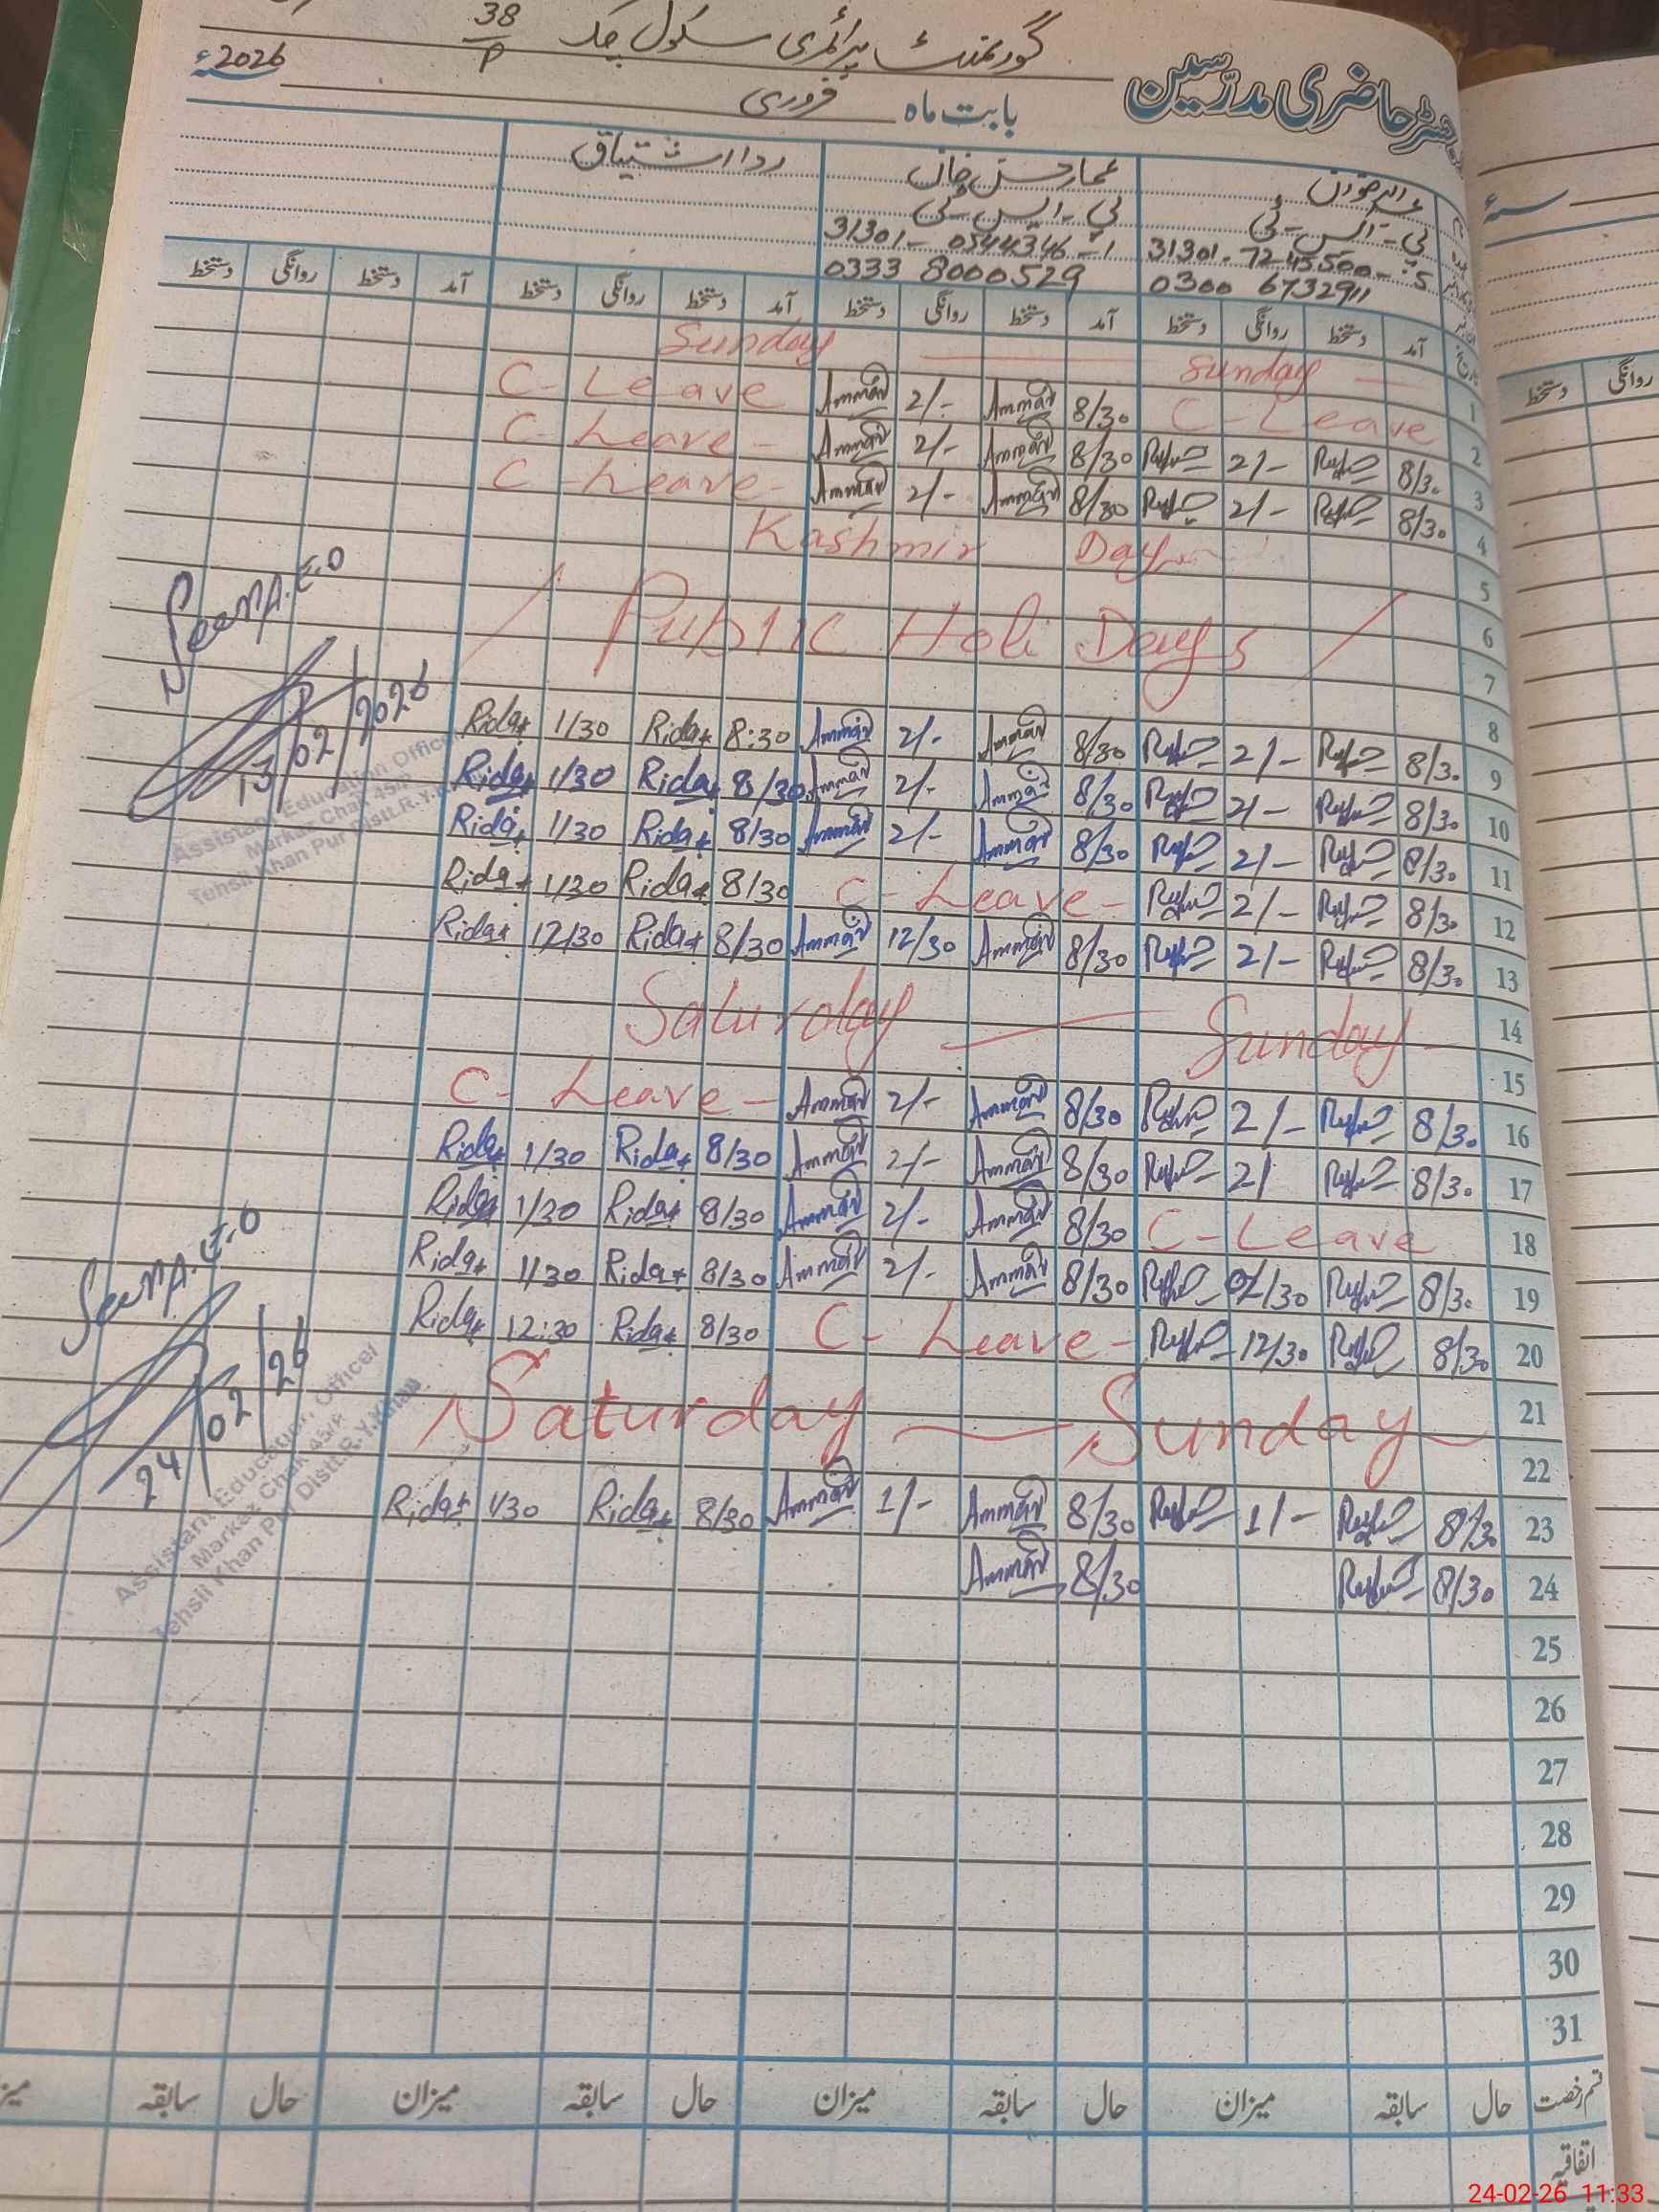 گورنمنٹ پرائمری سکول چک 38/P
حاضری مدرسین
بابت ماہ فروری 2026ء
عمار حسن خان
ردا اشتیاق
پی۔ایس۔ٹی پی۔ایس۔ٹی
31301-7245500-5 31301-0544346-1
0300 6732911 0333 8000529
آمد دستخط روانگی دستخط آمد دستخط روانگی دستخط آمد دستخط روانگی دستخط آمد دستخط روانگی دستخط
1 Sunday — Sunday
2 C-Leave Ammar 2/- Ammar 8/30 C-Leave
3 C-Leave- Ammar 2/- Ammar 8/30 2/- 8/30
4 C-Leave- Ammar 2/- Ammar 8/30 2/- 8/30
5 Kashmir Day
6
7 Public Holi Days
8
9 Rida 1/30 Rida 8:30 Ammar 2/- Ammar 8/30 2/- 8/30
10 Rida 1/30 Rida 8/30 Ammar 2/- Ammar 8/30 2/- 8/30
11 Rida 1/30 Rida 8/30 Ammar 2/- Ammar 8/30 2/- 8/30
12 Rida 1/30 Rida 8/30 C-Leave- 2/- 8/30
13 Rida 12/30 Rida 8/30 Ammar 12/30 Ammar 8/30 2/- 8/30
14 Saturday — Sunday-
15
16 C-Leave- Ammar 2/- Ammar 8/30 2/- 8/30
17 Rida 1/30 Rida 8/30 Ammar 2/- Ammar 8/30 2/ 8/30
18 Rida 1/30 Rida 8/30 Ammar 2/- Ammar 8/30 C-Leave
19 Rida 1/30 Rida 8/30 Ammar 2/- Ammar 8/30 8/30
20 Rida 12:30 Rida 8/30 C-Leave- 12/30 8/30
21 Saturday — Sunday
22
23 Rida 1/30 Rida 8/30 Ammar 1/- Ammar 8/30 1/- 8/30
24 Ammar 8/30 8/30
25
26
27
28
29
30
31
Seen A.E.O
13/02/2026
Assistant Education Officer
Markaz Chak 45/P
Tehsil Khan Pur Distt.R.Y.Khan
Seen A.E.O
24/02/26
Assistant Education Officer
Markaz Chak 45/P
Tehsil Khan Pur Distt.R.Y.Khan
قسم رخصت حال سابقہ میزان حال سابقہ میزان حال سابقہ میزان حال سابقہ
اتفاقیہ
روانگی دستخط
24-02-26 11:33